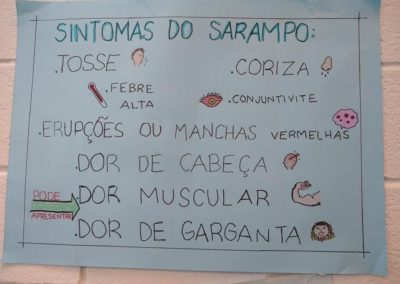 SINTOMAS DO SARAMPO:
.TOSSE .CORIZA
.FEBRE ALTA .CONJUNTIVITE
.ERUPÇÕES OU MANCHAS VERMELHAS
.DOR DE CABEÇA
PODE APRESENTAR
.DOR MUSCULAR
.DOR DE GARGANTA